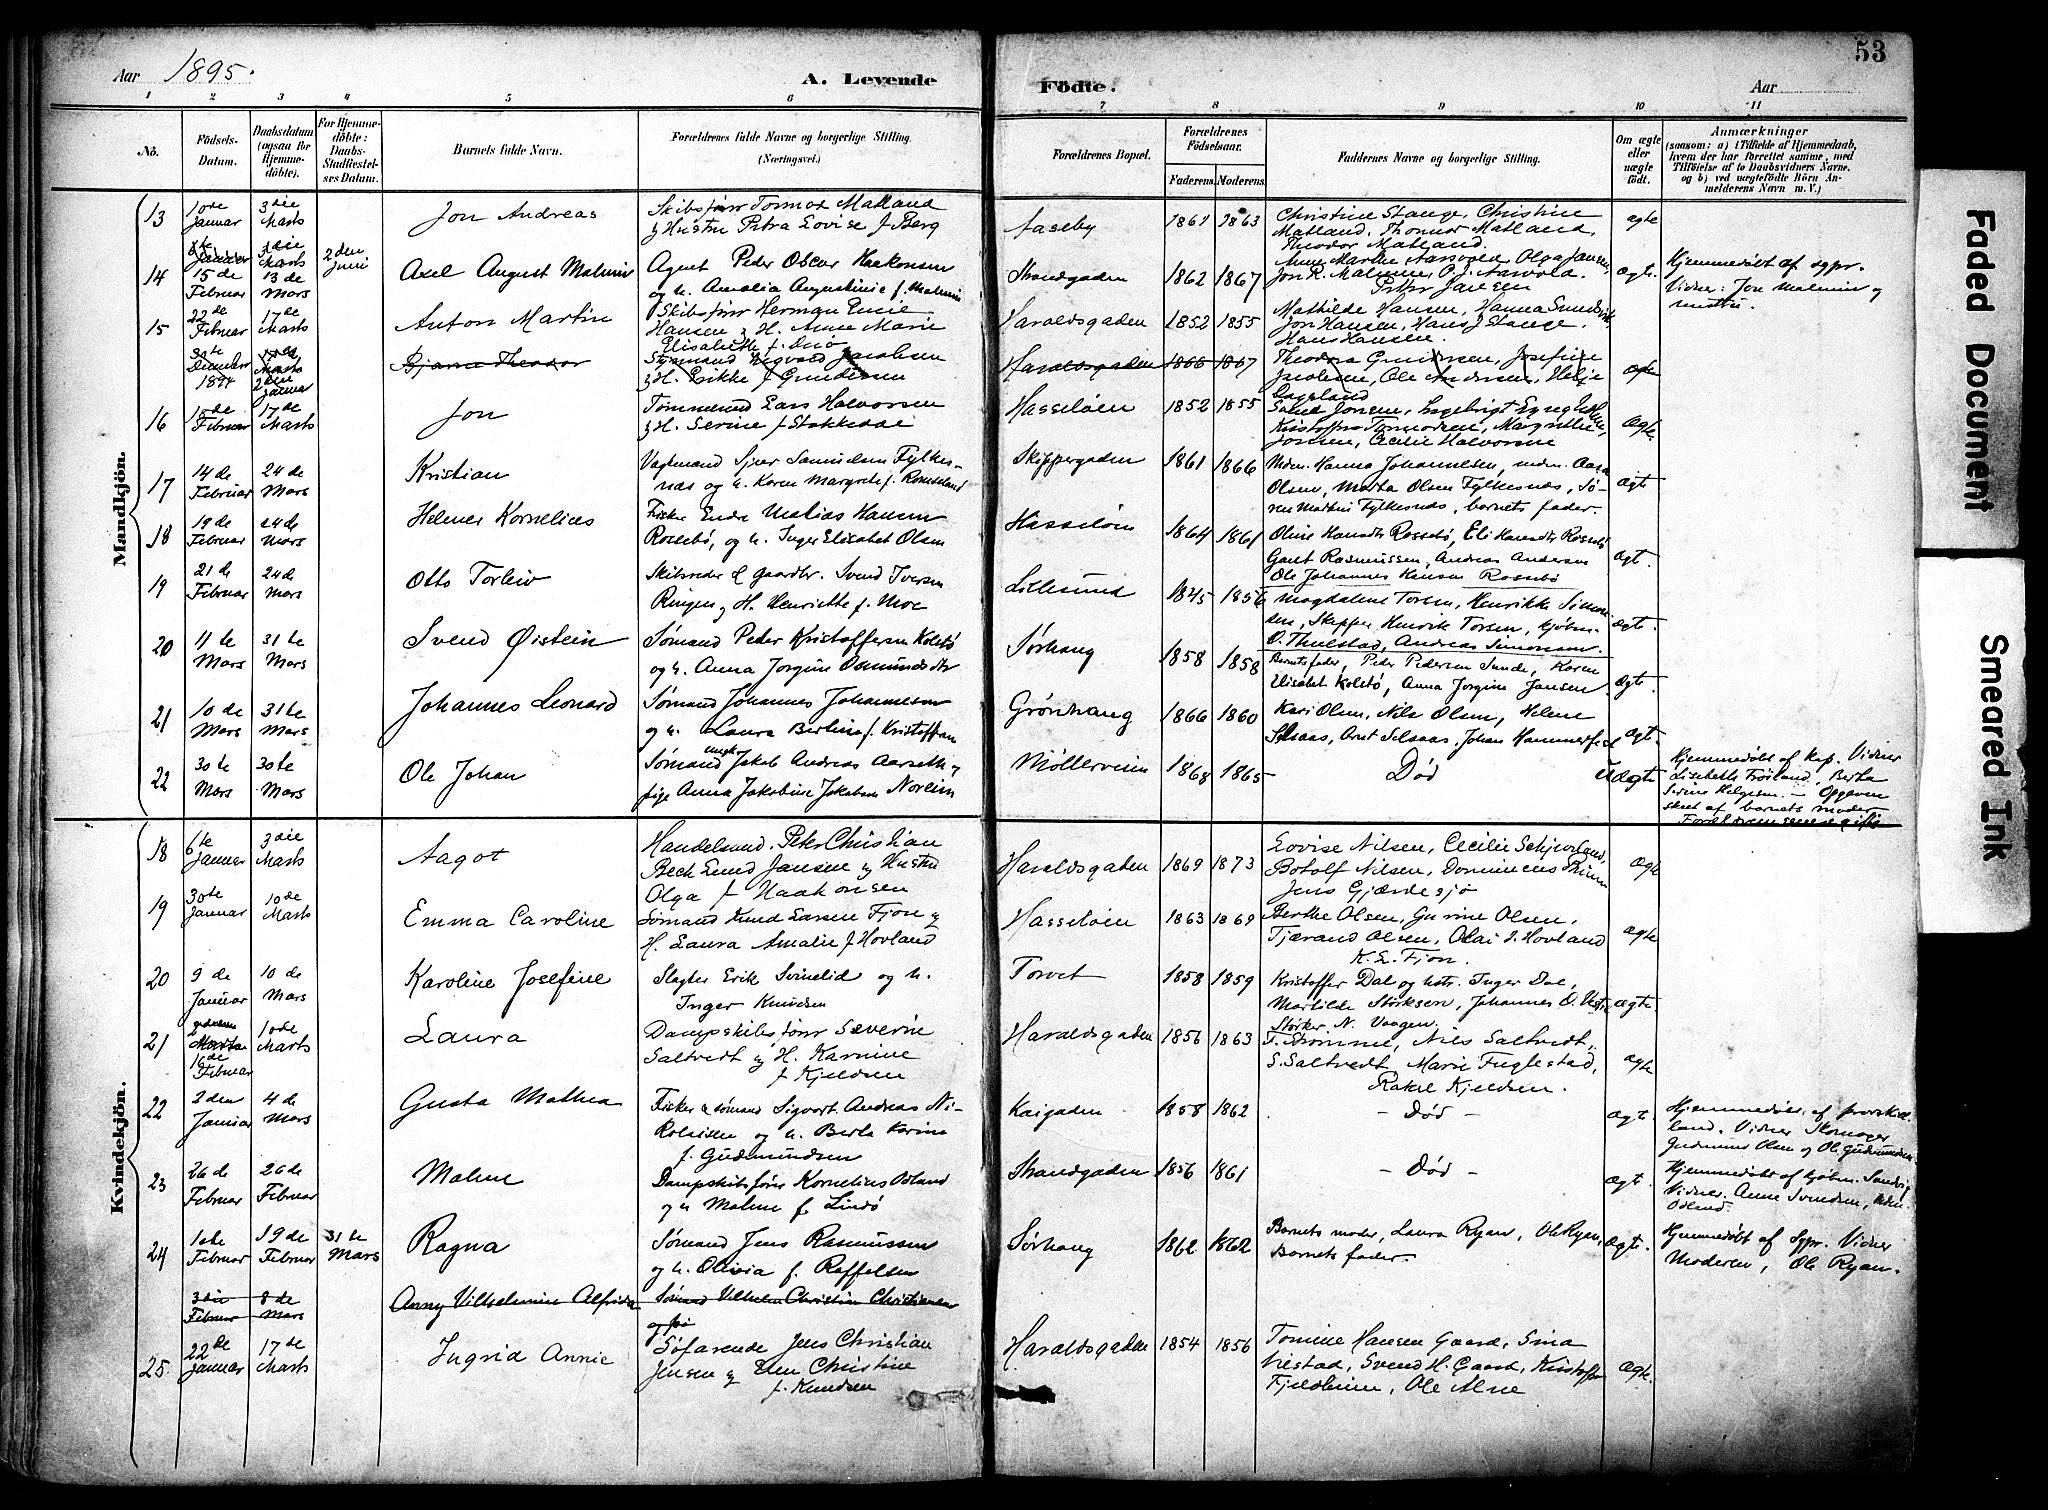 53
Aar 1895.
A. Levende
Födte.
Aar
1 2 3 4 5 6 7 8 9 10 11
No.
Födsels-Datum.
Daabsdatum (ogsaa for Hjemme-döbte).
For Hjemme-döbte: Daabs-Stadfæstel-ses Datum.
Barnets fulde Navn.
Forældrenes fulde Navne og borgerlige Stilling. (Næringsvei.)
Forældrenes Bopæl.
Forældrenes Födselsaar.
Faderens. Moderens.
Faddernes Navne og borgerlige Stilling.
Om ægte eller uægte födt.
Anmærkninger
(saasom: a) i Tilfælde af Hjemmedaab, hvem der har forrettet samme, med Tilföielse af to Daabsvidners Navne, og b) ved uægtefödte Börn Anmelderens Navn m. V.)
Mandkjön.
13 10de Januar 3die Marts Jon Andreas Skibsfører Tormod Matland
y Hustru Petra Lovise f Berg Aaseby 1861 1863 Christine Stange, Christine
Matland, Thormod Matland,
Theodor Matland. ægte
14 15de Februar 13de Mars 2den Juni Axel August Malmin Agent Peder Oscar Haakonsen
og h. Amalia Augustinie f. Malmin Strandgaden 1862 1867 Anne Marthe Aarsvold, Olga Jansen,
Jon R. Malmin, O. J. Aarsvold.
Peter Jansen ægt. Hjemmedøbt af sgpr.
Vidner: Jon Malmin og
15 22de Februar 17de Marts Anton Martin Skibsfører Herman Enie
Hansen y H. Anne Marie
Elisabeth f. Haraldsgaden 1852 1855 Mathilde Hansen, Hanna
Jon Hansen, Hans J Stange,
Hans Hansen.
30te December 1894 2den Januar Bjarne Theodor Styrmand Sigvard Jacobsen
y H. Rikke f Gundersen Haraldsgaden 1866 1867 Theodora Gundersen, Josefine
Jacobsen, Ole Andersen, Helje ægte
16 15de Februar 17de Marts Jon Tømmermd Lars Halvorsen
y H. Serine f Stokkedal Hasseløen 1852 1855
Kristoffer Tormodsen, Margrethe
Jonsen, Cecilie Halvorsen ægte
17 14de Februar 24de Mars Kristian Vagtmand Sjur Samuelsen Fylkes-
næs og h. Karen Margrete f. Skippergaden 1861 1866 Mdm. Hanna Johannesen, mdm. Aasa
Olsen, Marta Olsen Fylkesnæs, Sø-
ren Martin Fylkesnæs, barnets fader. ægt
18 19de Februar 24de Mars Helmer Kornelius Fisker Endre Matias Hansen
Rossebø, og h. Inger Elisabet Olsen Hasseløen 1864 1861 Oline Hansdtr Rossebø, Eli Hansdtr Rossebø
Gaut Rasmussen, Andreas Andersen
Ole Johannes Hansen Rossebø ægt.
19 21de Februar 24de Mars Otto Torleiv Skibsreder & gaardbr. Svend Iversen
Ringen y H. Henriette f. Moe Lillesund 1845 1856 Magdalene Torsen, Henrikke Simon-
sen, Skipper Henrik Torsen, kjøbm.
O. Thulstad, Andreas Simonsen. ægt.
20 11te Mars 31te Mars Svend Øistein Sømand Peder Kristoffersen Kolstø
og h. Anna Jorgine Osmundsdtr Sørhaug 1858 1858 Barnets fader, Peder Pedersen Sunde, Karen
Elisabet Kolstø, Anna Jorgine Jansen ægt.
21 10de Mars 31te Mars Johannes Leonard Sømand Johannes Johannesen
og h. Laura Bertine f. Kristoffersen Grønhaug 1866 1860 Kari Olsen, Nils Olsen, Helene
Selsaas, Arnt Selsaas, Johan Hammerfest ægt.
22 30te Mars 30te Mars Ole Johan Sømand ungk. Jakob Andreas Aarseth y
pige Anna Jakobine Jakobsen Norheim Møllerveien 1868 1865 Død uægte Hjemmedøbt af kap. Vidner
Lisabeth Frøiland, Berta
Serine Helgesen. — Opgaven
skeet af barnets moder
Kvindekjön.
18 6te Januar 3die Marts Aagot Handelsmd. Peter Christian
Bech Lund Jansen y Hustru
Olga f Haakonsen Haraldsgaden 1869 1873 Lovise Nilsen, Cecilie Schjveland,
Botolf Nilsen, Dominicus
Jens Gjærdesjø ægte
19 30te Januar 10de Marts Emma Caroline Sømand Knud Larsen Fjon y
H. Laura Amalie f Hovland Hasseløen 1863 1869 Berthe Olsen, Gurine Olsen,
Tjærand Olsen, Olai I. Hovland
K. L. Fjon. ægte
20 9de Januar 10de Mars Karoline Josefine Slagter Erik Svinelid og h.
Inger Knudsen Torvet 1858 1859 Kristoffer Dal og hstr. Inger Dal,
Martilde Størksen, Johannes O.
Størker N. Vaagen. ægte.
21 16de Februar 10de Marts Laura Dampskibsfører Severin
Saltvedt y H. Karine
f Kjeldsen Haraldsgaden 1856 1863 T. Strømme, Nils Saltvedt,
S. Saltvedt, Marie Fuglestad,
Rakel Kjeldsen. ægte
22 2den Januar 4de Mars Gusta Mathea Fisker & sømand Sigvart Andreas Ni-
kolaisen og h. Berta Karine
f. Gudmundsen Kaigaden 1858 1862 - Død - ægt. Hjemmedøbt af
Vidner Skomager
Gudmund Olsen og Ole Gudmundsen
23 26de Februar 26de Februar Malene Dampskibsfører Kornelius Ødland
og h Malene f. Lindø Strandgaden 1856 1861 - Død - ægt. Hjemmedøbt af kjøbm. Sandvig
Vidner. Anne Svendsen, mdm.
Ødland.
24 10de Februar 19de Februar 31te Mars Ragna Sømand Jens Rasmussen
og h. Olivia f. Raffelsen Sørhaug 1862 1862 Barnets moder, Laura Ryan, Ole Ryan,
Barnets fader. ægt. Hjemmedøbt af Sgpr. Vidner
Moderen, Ole Ryan.
3die Februar 8de Mars Anny Vilhelmine Alfrida Sømand Vilhelm Christian Christiansen
25. 22de Januar 17de Marts Ingrid Annie Søfarende Jens Christian
Jensen y Ellen Christine
f. Knudsen Haraldsgaden 1854 1856 Tomine Hansen Gaard, Sina
Nestad, Svend H. Gaard, Kristoffer
Fjeldheim, Ole Alne ægte.
Faded Document
Smeared Ink